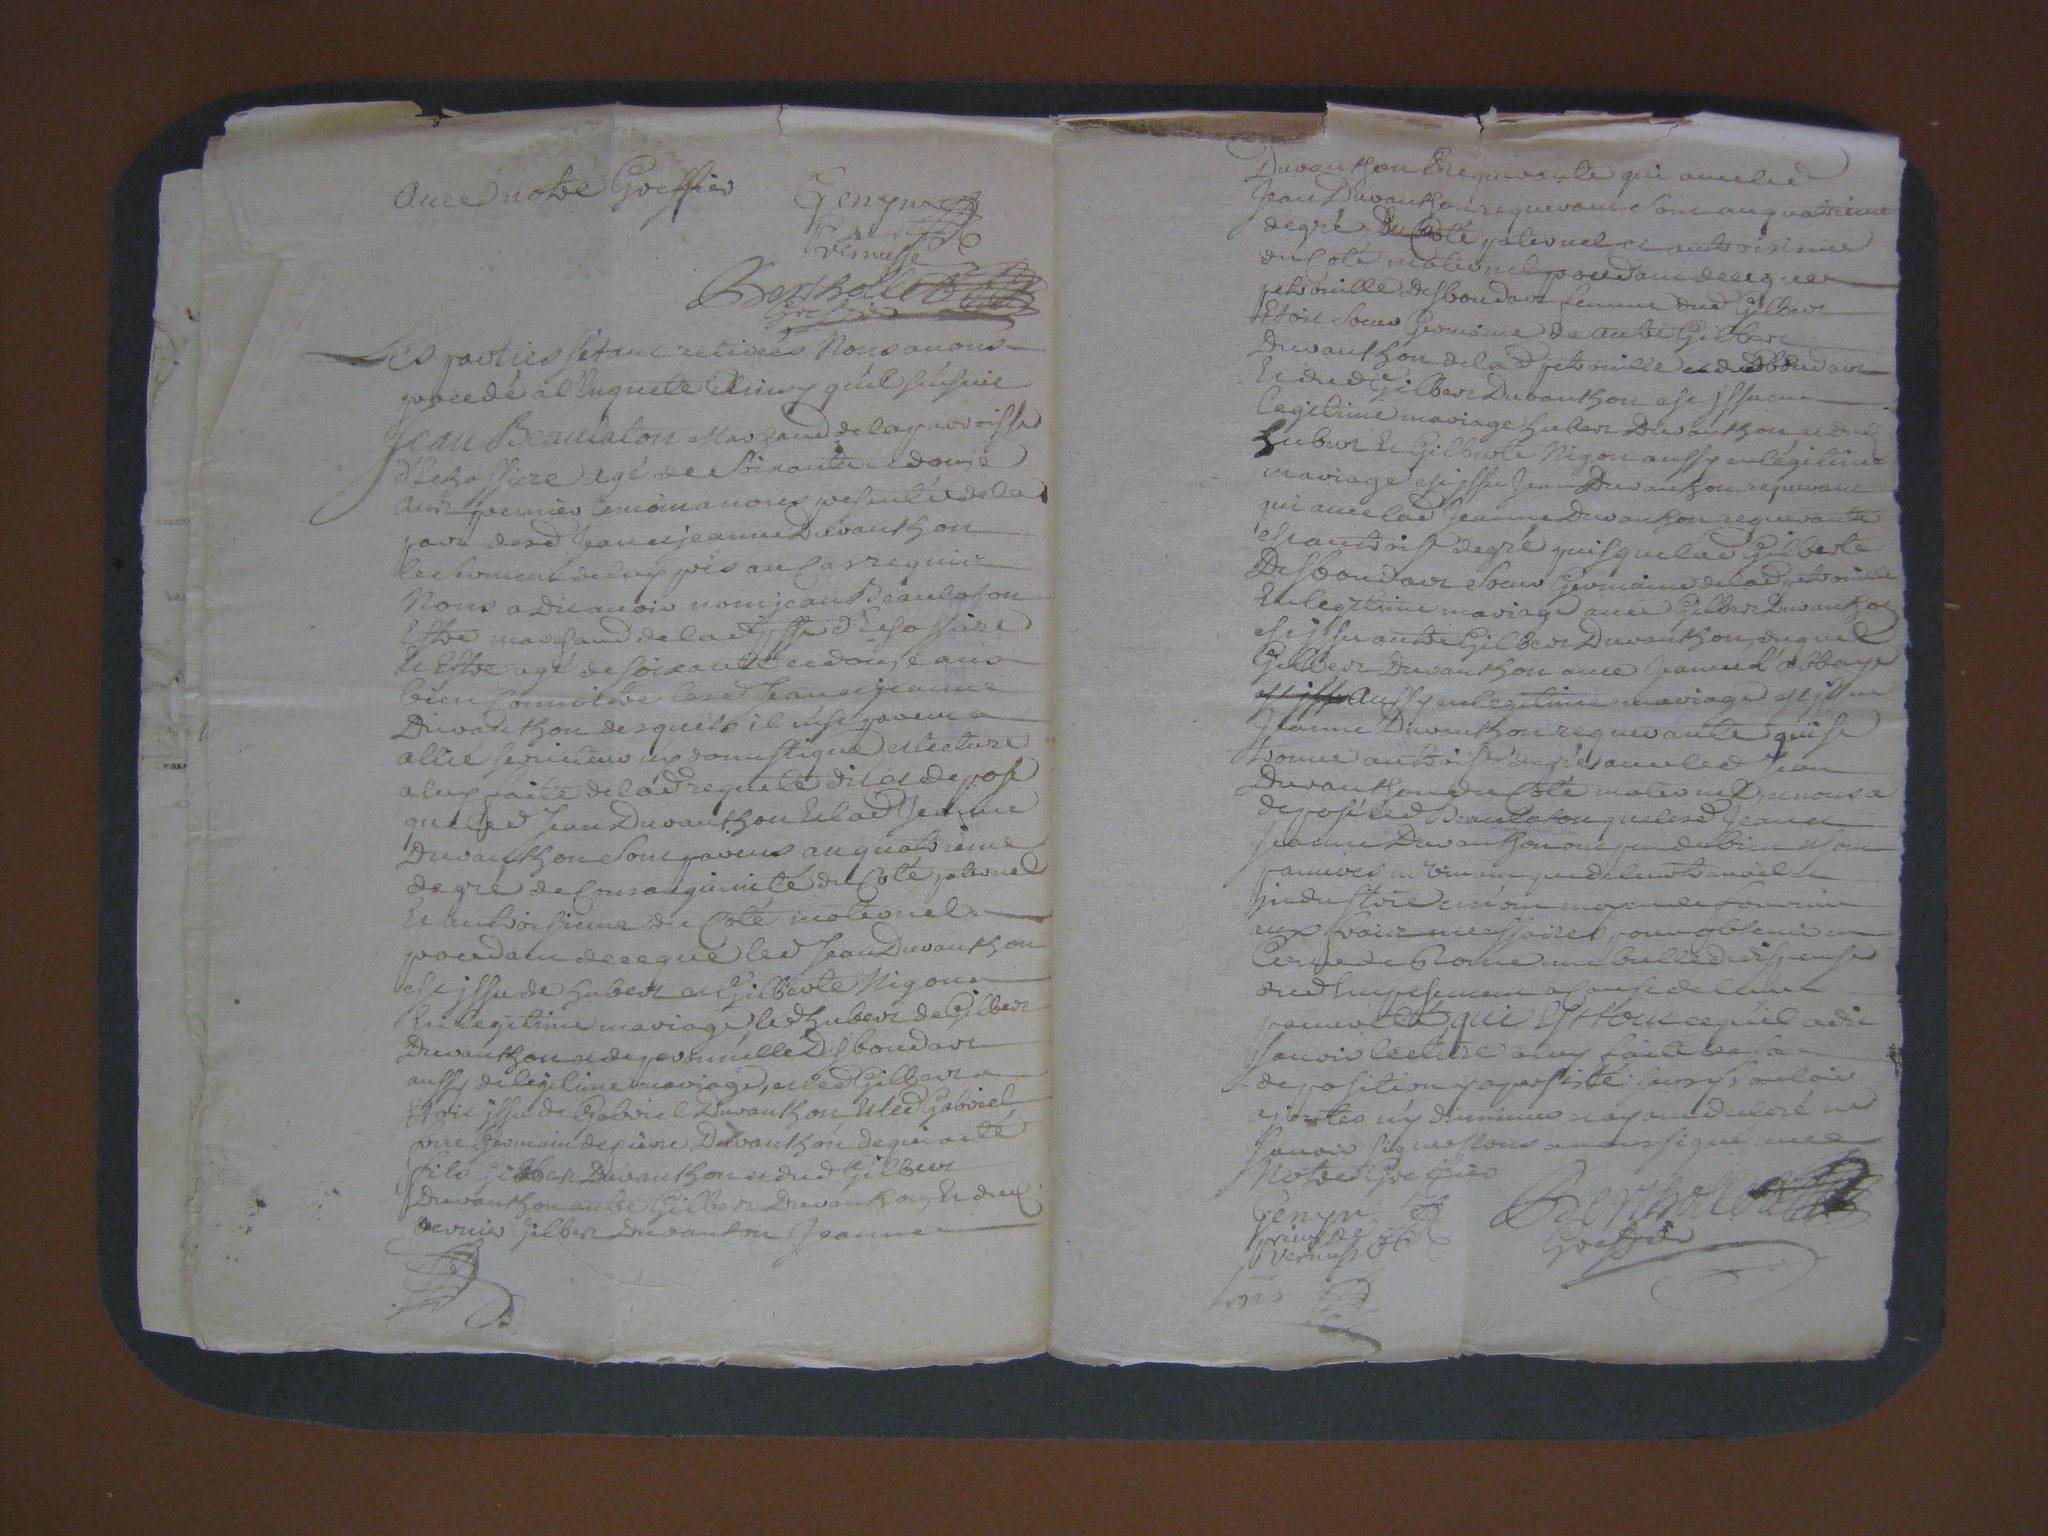 Avec notre Greffier
Genyn
de
Vernusse
Berthollet
Greffier
Les parties s'étant retirées Nous avons
procedé à l'Enquete Ainsy qu'il s'ensuit
Jean Beaulaton Marchand de la parroisse
d'Echassiere agé de soixante et douze
ans premier temoin a nous presenté de la
part desd Jean et jeanne Duvauthon
le serment de luy pris au cas requis
Nous a dit avoir nom jean Beaulaton
Estre marchand de lad psse d'Echassiere
Et Estre agé de soixante et douze ans
bien Connoitre lesd Jean et jeanne
Duvauthon desquels il n'est parent
allié serviteur ny domestique et lecture
a luy faite de lad requete dit et depose
que led Jean Duvauthon Et lad Jeanne
Duvauthon sont parens au quatrieme
degré de Consanguinité du Coté paternel
Et au troisieme du Coté maternel
procedant de ce que led Jean Duvauthon
est jssu de hubert et Gilberte Nigon
En legitime mariage, led hubert de Gilbert
Duvauthon et de petronille Desboudart
aussy de legitime mariage, et led Gilbert
Etoit jssu de Gabriel Duvauthon, Et led Gabriel
frere Germain de pierre Duvauthon de qui a eté
fils Gilbert Duvauthon et dud Gilbert
Duvauthon autre Gilbert Duvauthon, Et dud
dernier Gilbert Duvauton Jeanne
Duvauthon Requerante qui avec led
Jean Duvauthon requerant sont au quatrieme
degré du Coté paternel et au troisieme
du Coté maternel procedant de ce que
petronille Desboudart femme dud Gilbert
Etoit soeur Germaine de autre Gilbert
Duvauthon de lad petronille et dud boudart
Et dud Gilbert Duvauthon est jssu en
legitime mariage hubert Duvauthon et dud
hubert Et Gilberte Nigon aussy en légitime
mariage est jssu Jean Duvauthon requerant
qui avec lad Jeanne Duvauthon requerante
est au trois degré puisque lad Gilberte
Desboudart soeur Germaine de lad petronille
En legitime mariage avec Gilbert Duvauthon
est jssu autre Gilbert Duvauthon, duquel
Gilbert Duvauthon avec Jeanne Labbaye
est jssu aussy en legitime mariage est jssue
Jeanne Duvauthon requerante qui se
trouve au trois degré avec led Jean
Duvauthon du Coté maternel, et nous a
deposé led Beaulaton que lesd Jean et
Jeanne Duvauthon ont peu de bien et sont
pauvres ne vivant que de leur travail et
jndustrie et n'ont moyen de fournir
aux frais necessaires pour obtenir en
Cour de Rome une bulle de dispense
dud Empechement a Cause de leur
pauvreté, qui Est tout ce qu'il a dit
savoir lecture a luy faite de sa
deposition y a persisté sans y vouloir
ajouter ny diminuer n'ayant declaré ne
savoir signer nous avons signé avec
Notre Greffier
Genyn
prieur de
Vernusse
Berthollet
Greffier